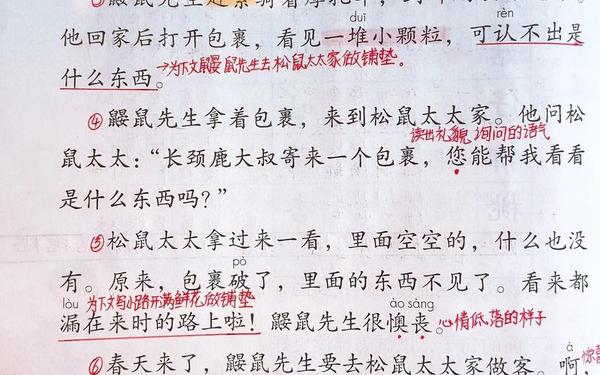 ③鼹鼠先生赶紧骑着摩托车
duī rèn
他回家后打开包裹，看见一堆小颗粒，可认不出是
什么东西。→为下文鼹鼠先生去松鼠太太家做铺垫。
④鼹鼠先生拿着包裹，来到松鼠太太家。他问松
读出礼貌、询问的语气
鼠太太：“长颈鹿大叔寄来一个包裹，您能帮我看看
是什么东西吗？”
⑤松鼠太太拿过来一看，里面空空的，什么也没
pò
有。原来，包裹破了，里面的东西不见了。看来都
lòu 为下文写小路开满鲜花做铺垫 ào sàng
漏在来时的路上啦！鼹鼠先生很懊丧。心情低落的样子
à 惊喜
⑥春天来了，鼹鼠先生要去松鼠太太家做客。啊，